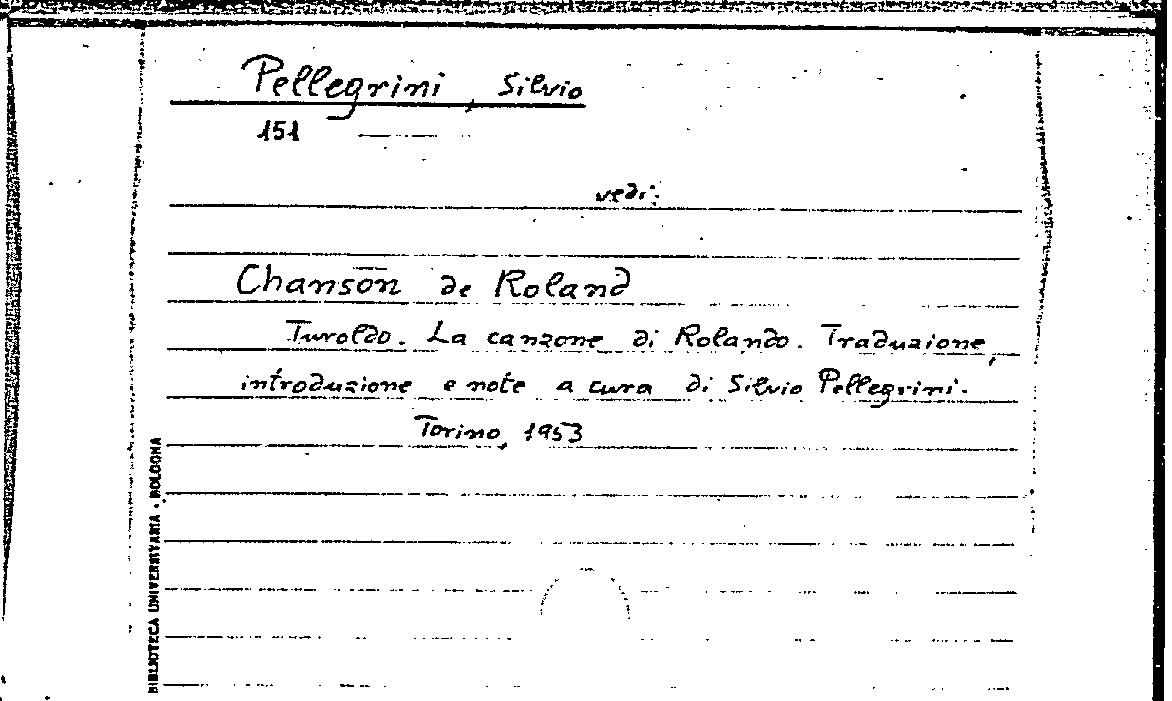 Pellegrini, Silvio
151
vedi:
Chanson de Roland
Turoldo. La canzone di Rolando. Traduzione,
introduzione e note a cura di Silvio Pellegrini.
Torino, 1953
BIBLIOTECA UNIVERSITARIA - BOLOGNA